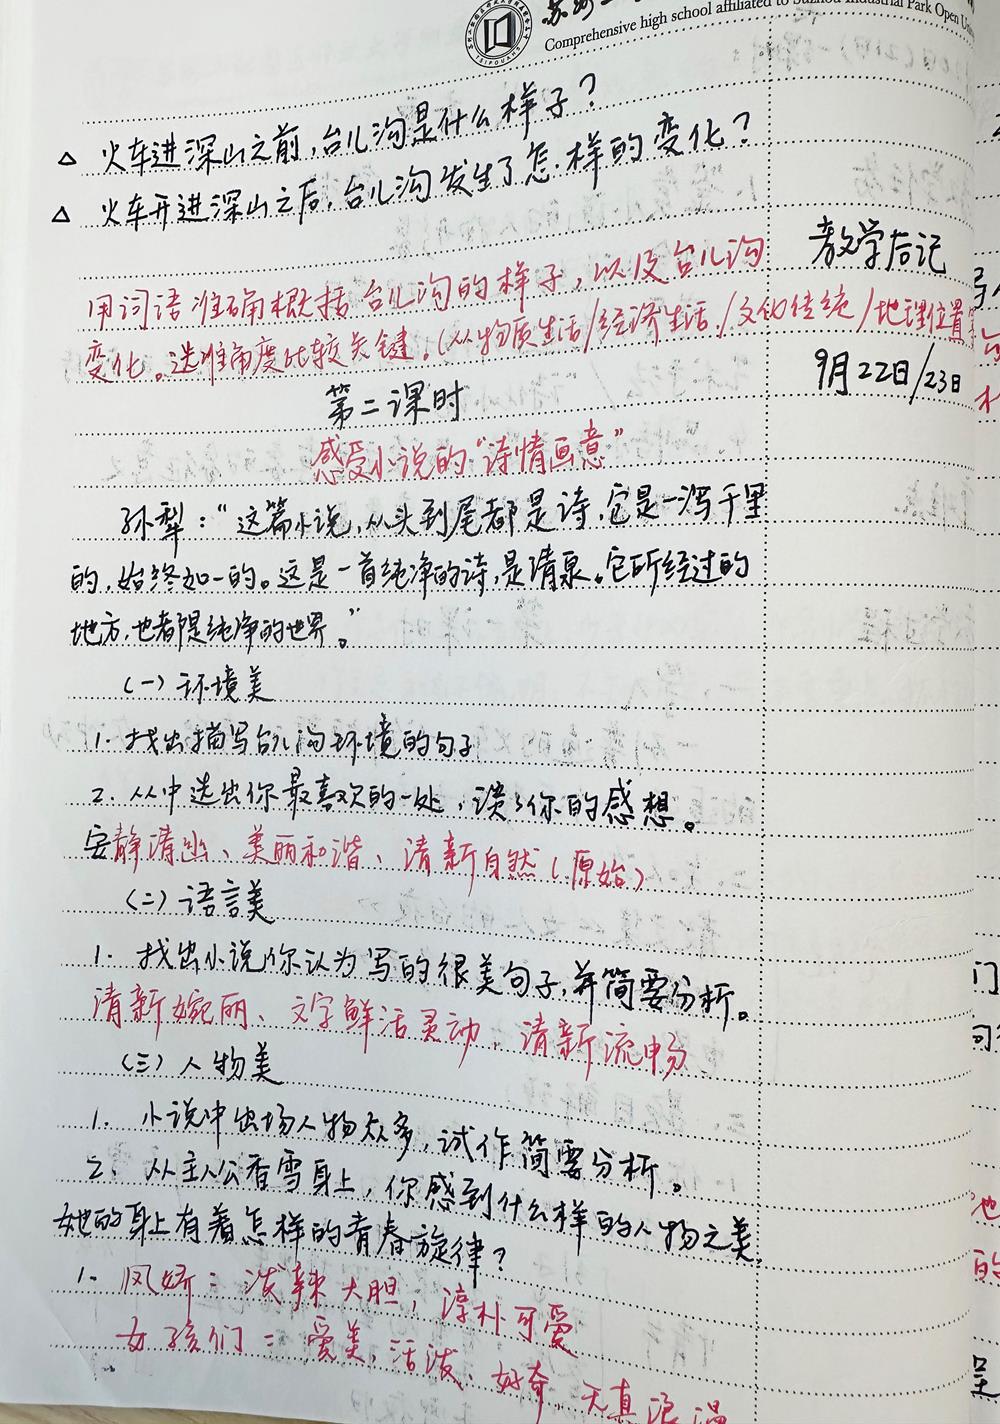 Comprehensive high school affiliated to Suzhou Industrial Park Open
△ 火车进深山之前,台儿沟是什么样子?
△ 火车开进深山之后,台儿沟发生了怎样的变化?
教学后记
用词语准确概括台儿沟的样子,以及台儿沟
变化。选准角度比较关键。(从物质生活/经济生活/文化传统/地理位置
第二课时
9月22日/23日
感受小说的“诗情画意”
孙犁:“这篇小说,从头到尾都是诗,它是一泻千里
的,始终如一的。这是一首纯净的诗,是清泉。它所经过的
地方,也都是纯净的世界。”
(一)环境美
1. 找出描写台儿沟环境的句子
2. 从中选出你最喜欢的一处,谈谈你的感想。
安静清幽、美丽和谐、清新自然(原始)
(二)语言美
1. 找出小说你认为写的很美句子,并简要分析。
清新婉丽、文字鲜活灵动,清新流畅
(三)人物美
1. 小说中出场人物众多,试作简要分析。
2. 从主人公香雪身上,你感到什么样的人物之美,
她的身上有着怎样的青春旋律?
1. 凤娇:泼辣大胆,淳朴可爱
女孩们:爱美,活泼、好奇、天真浪漫